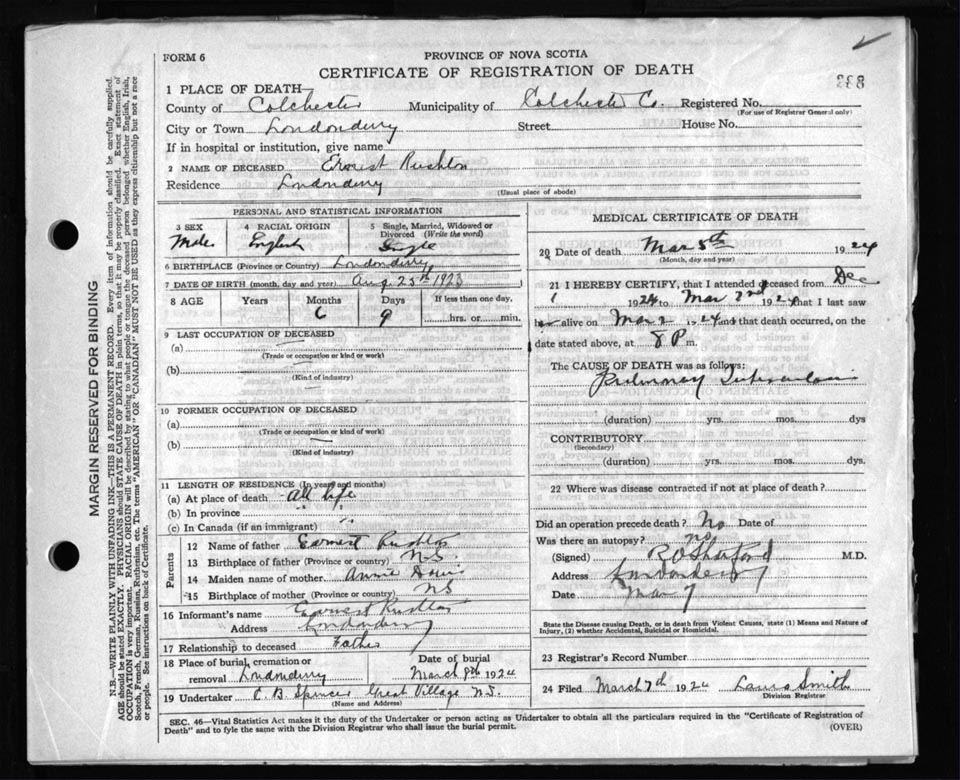 FORM 6
PROVINCE OF NOVA SCOTIA
CERTIFICATE OF REGISTRATION OF DEATH
1 PLACE OF DEATH
County of Colchester Municipality of Colchester Co. Registered No.
(For use of Registrar General only)
City or Town Londonderry Street House No.
If in hospital or institution, give name
2 NAME OF DECEASED Ernest Rushton
Residence Londonderry
(Usual place of abode)
PERSONAL AND STATISTICAL INFORMATION
3 SEX 4 RACIAL ORIGIN 5 Single, Married, Widowed or Divorced (Write the word)
Male English Single
6 BIRTHPLACE (Province or Country) Londonderry
7 DATE OF BIRTH (month, day and year) Aug 25th 1923
8 AGE Years Months Days If less than one day,
6 9 hrs. or min.
9 LAST OCCUPATION OF DECEASED
(a)
(Trade or occupation or kind or work)
(b)
(Kind of industry)
10 FORMER OCCUPATION OF DECEASED
(a)
(Trade or occupation or kind of work)
(b)
(Kind of industry)
11 LENGTH OF RESIDENCE (In years and months)
(a) At place of death all life
(b) In province " "
(c) In Canada (if an immigrant) "
Parents
12 Name of father Earnest Rushton
13 Birthplace of father (Province or country) N.S.
14 Maiden name of mother Annie Davis
15 Birthplace of mother (Province or country) NS
16 Informant's name Earnest Rushton
Address Londonderry
17 Relationship to deceased Father
18 Place of burial, cremation or removal Londonderry Date of burial March 8th 1924
19 Undertaker C. B. Spencer Great Village N.S.
(Name and Address)
MEDICAL CERTIFICATE OF DEATH
20 Date of death Mar 5th 1924
(Month, day and year)
21 I HEREBY CERTIFY, that I attended deceased from Dec
1 1924 to Mar 2nd 1924 that I last saw
alive on Mar 2 1924 and that death occurred, on the
date stated above, at 8 P m.
The CAUSE OF DEATH was as follows:
Pulmonary Tuberculosis
(duration) yrs. mos. dys
CONTRIBUTORY
(Secondary)
(duration) yrs. mos. dys.
22 Where was disease contracted if not at place of death?
Did an operation precede death? No Date of
Was there an autopsy? no
(Signed) M.D.
Address Londonderry
Date Mar 7
State the Disease causing Death, or in death from Violent Causes, state (1) Means and Nature of Injury, (2) whether Accidental, Suicidal or Homicidal.
23 Registrar's Record Number
24 Filed March 7th 1924 Laura Smith
Division Registrar
SEC. 46—Vital Statistics Act makes it the duty of the Undertaker or person acting as Undertaker to obtain all the particulars required in the "Certificate of Registration of
Death" and to fyle the same with the Division Registrar who shall issue the burial permit.
(OVER)
MARGIN RESERVED FOR BINDING
N.B.—WRITE PLAINLY WITH UNFADING INK—THIS IS A PERMANENT RECORD. Every item of information should be carefully supplied.
AGE should be stated EXACTLY. PHYSICIANS should STATE CAUSE OF DEATH in plain terms, so that it may be properly classified. Exact statement of
OCCUPATION is very important. RACIAL ORIGIN will be described by stating to what people or tongue the deceased person belonged whether English, Irish,
Scotch, French, German, Russian, Ruthenian, etc. The terms "AMERICAN" OR "CANADIAN" MUST NOT BE USED as they express citizenship but not a race
or people. See instructions on back of Certificate.